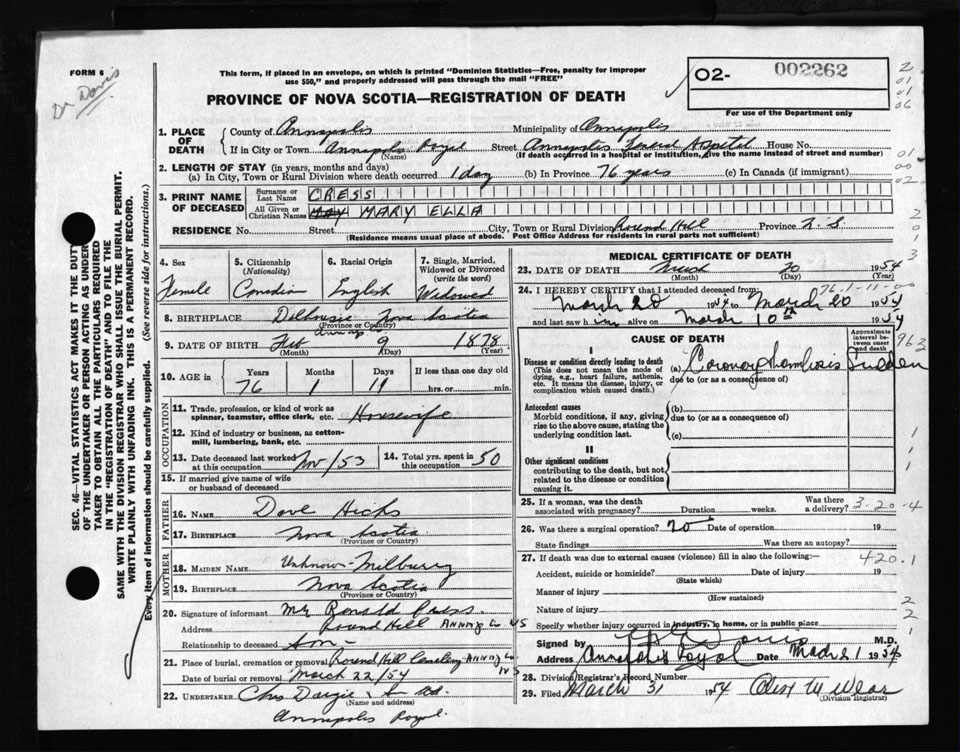 FORM 6
Dr Davis
This form, if placed in an envelope, on which is printed "Dominion Statistics—Free, penalty for improper
use $50," and properly addressed will pass through the mail "FREE"
PROVINCE OF NOVA SCOTIA—REGISTRATION OF DEATH
O2- 002262
For use of the Department only
1. PLACE OF DEATH
County of Annapolis Municipality of Annapolis
If in City or Town Annapolis Royal (Name) Street Annapolis General Hospital House No.
(If death occurred in a hospital or institution, give the name instead of street and number)
2. LENGTH OF STAY (in years, months and days)
(a) In City, Town or Rural Division where death occurred 1 day (b) In Province 76 years (c) In Canada (if immigrant)
3. PRINT NAME OF DECEASED
Surname or Last Name CRESS
All Given or Christian Names MAY MARY ELLA
RESIDENCE No. Street City, Town or Rural Division Round Hill Province N.S
(Residence means usual place of abode. Post Office Address for residents in rural parts not sufficient)
SEC. 46—VITAL STATISTICS ACT MAKES IT THE DUTY
OF THE UNDERTAKER OR PERSON ACTING AS UNDER-
TAKER TO OBTAIN ALL THE PARTICULARS REQUIRED
IN THE "REGISTRATION OF DEATH" AND TO FILE THE
SAME WITH THE DIVISION REGISTRAR WHO SHALL ISSUE THE BURIAL PERMIT.
WRITE PLAINLY WITH UNFADING INK. THIS IS A PERMANENT RECORD.
Every item of information should be carefully supplied. (See reverse side for instructions.)
4. Sex Female
5. Citizenship (Nationality) Canadian
6. Racial Origin English
7. Single, Married, Widowed or Divorced (write the word) Widowed
8. BIRTHPLACE Dalhousie Nova Scotia
(Province or Country)
Annap
9. DATE OF BIRTH Feb (Month) 9 (Day) 1878 (Year)
10. AGE in Years 76 Months 1 Days 11 If less than one day hrs. or min.
OCCUPATION
11. Trade, profession, or kind of work as
spinner, teamster, office clerk, etc. Housewife
12. Kind of industry or business, as cotton-
mill, lumbering, bank, etc.
13. Date deceased last worked
at this occupation Nov/53
14. Total yrs. spent in
this occupation 50
15. If married give name of wife
or husband of deceased
FATHER
16. NAME Dave Hicks
17. BIRTHPLACE Nova Scotia
(Province or Country)
MOTHER
18. MAIDEN NAME Unknown Milbury
19. BIRTHPLACE Nova Scotia
(Province or Country)
20. Signature of informant Mr Ronald Cress
Address Round Hill Anna Co NS
Relationship to deceased Son
21. Place of burial, cremation or removal Round Hill Cemetery Anna Co NS
Date of burial or removal March 22/54
22. UNDERTAKER Chas Dargie & Son Ltd.
(Name and address)
Annapolis Royal
MEDICAL CERTIFICATE OF DEATH
23. DATE OF DEATH March (Month) 20 (Day) 1954
24. I HEREBY CERTIFY that I attended deceased from: 76.1-11-00
March 20 1954 to March 20 1954
and last saw h im alive on March 10th 1954
CAUSE OF DEATH
Approximate interval between onset and death
963
I
Disease or condition directly leading to death
(This does not mean the mode of
dying, e.g., heart failure, asthenia,
etc. It means the disease, injury, or
complication which caused death.)
(a) Coronary thrombosis Sudden
due to (or as a consequence of)
Antecedent causes
Morbid conditions, if any, giving
rise to the above cause, stating the
underlying condition last.
(b)
due to (or as a consequence of)
(c)
II
Other significant conditions
contributing to the death, but not
related to the disease or condition
causing it.
25. If a woman, was the death
associated with pregnancy? Duration weeks. Was there a delivery? 3-20-4
26. Was there a surgical operation? no Date of operation 19
State findings Was there an autopsy?
27. If death was due to external causes (violence) fill in also the following:— 420.1
Accident, suicide or homicide? (State which) Date of injury 19
Manner of injury (How sustained)
Nature of injury
Specify whether injury occurred in industry, in home, or in public place
Signed by Davis M.D.
Address Annapolis Royal Date March 21 1954
28. Division Registrar's Record Number
29. Filed March 31 1954
(Division Registrar)